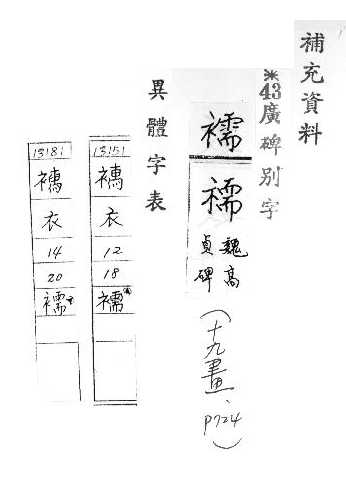 補充資料
※43廣碑別字
襦
襦
魏高
貞碑
(十九畫、P724)
異體字表
13151
衣
12
18
襦
13181
衣
14
20
襦